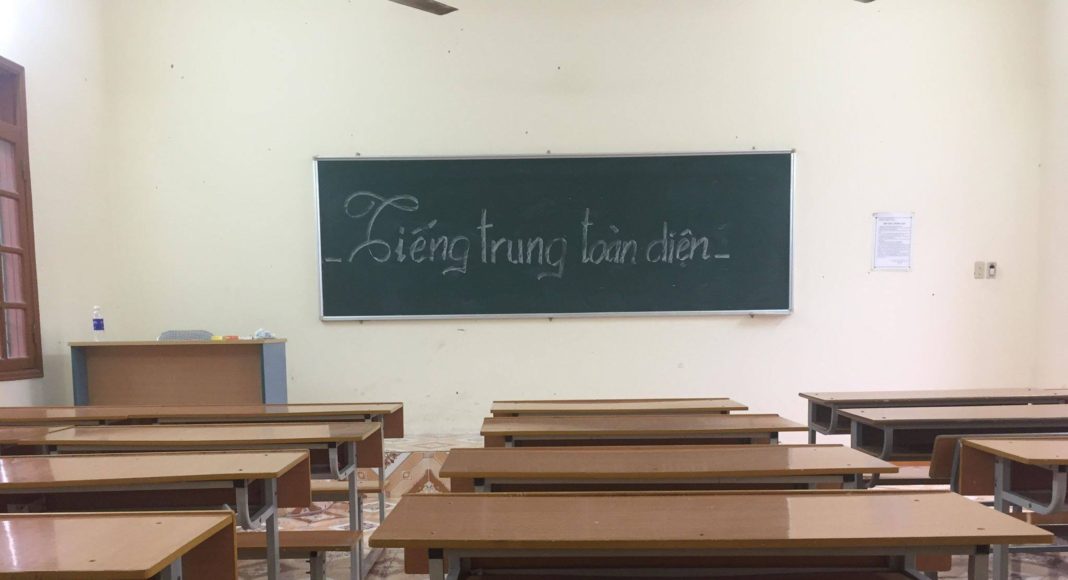 - Tiếng trung toàn diện -